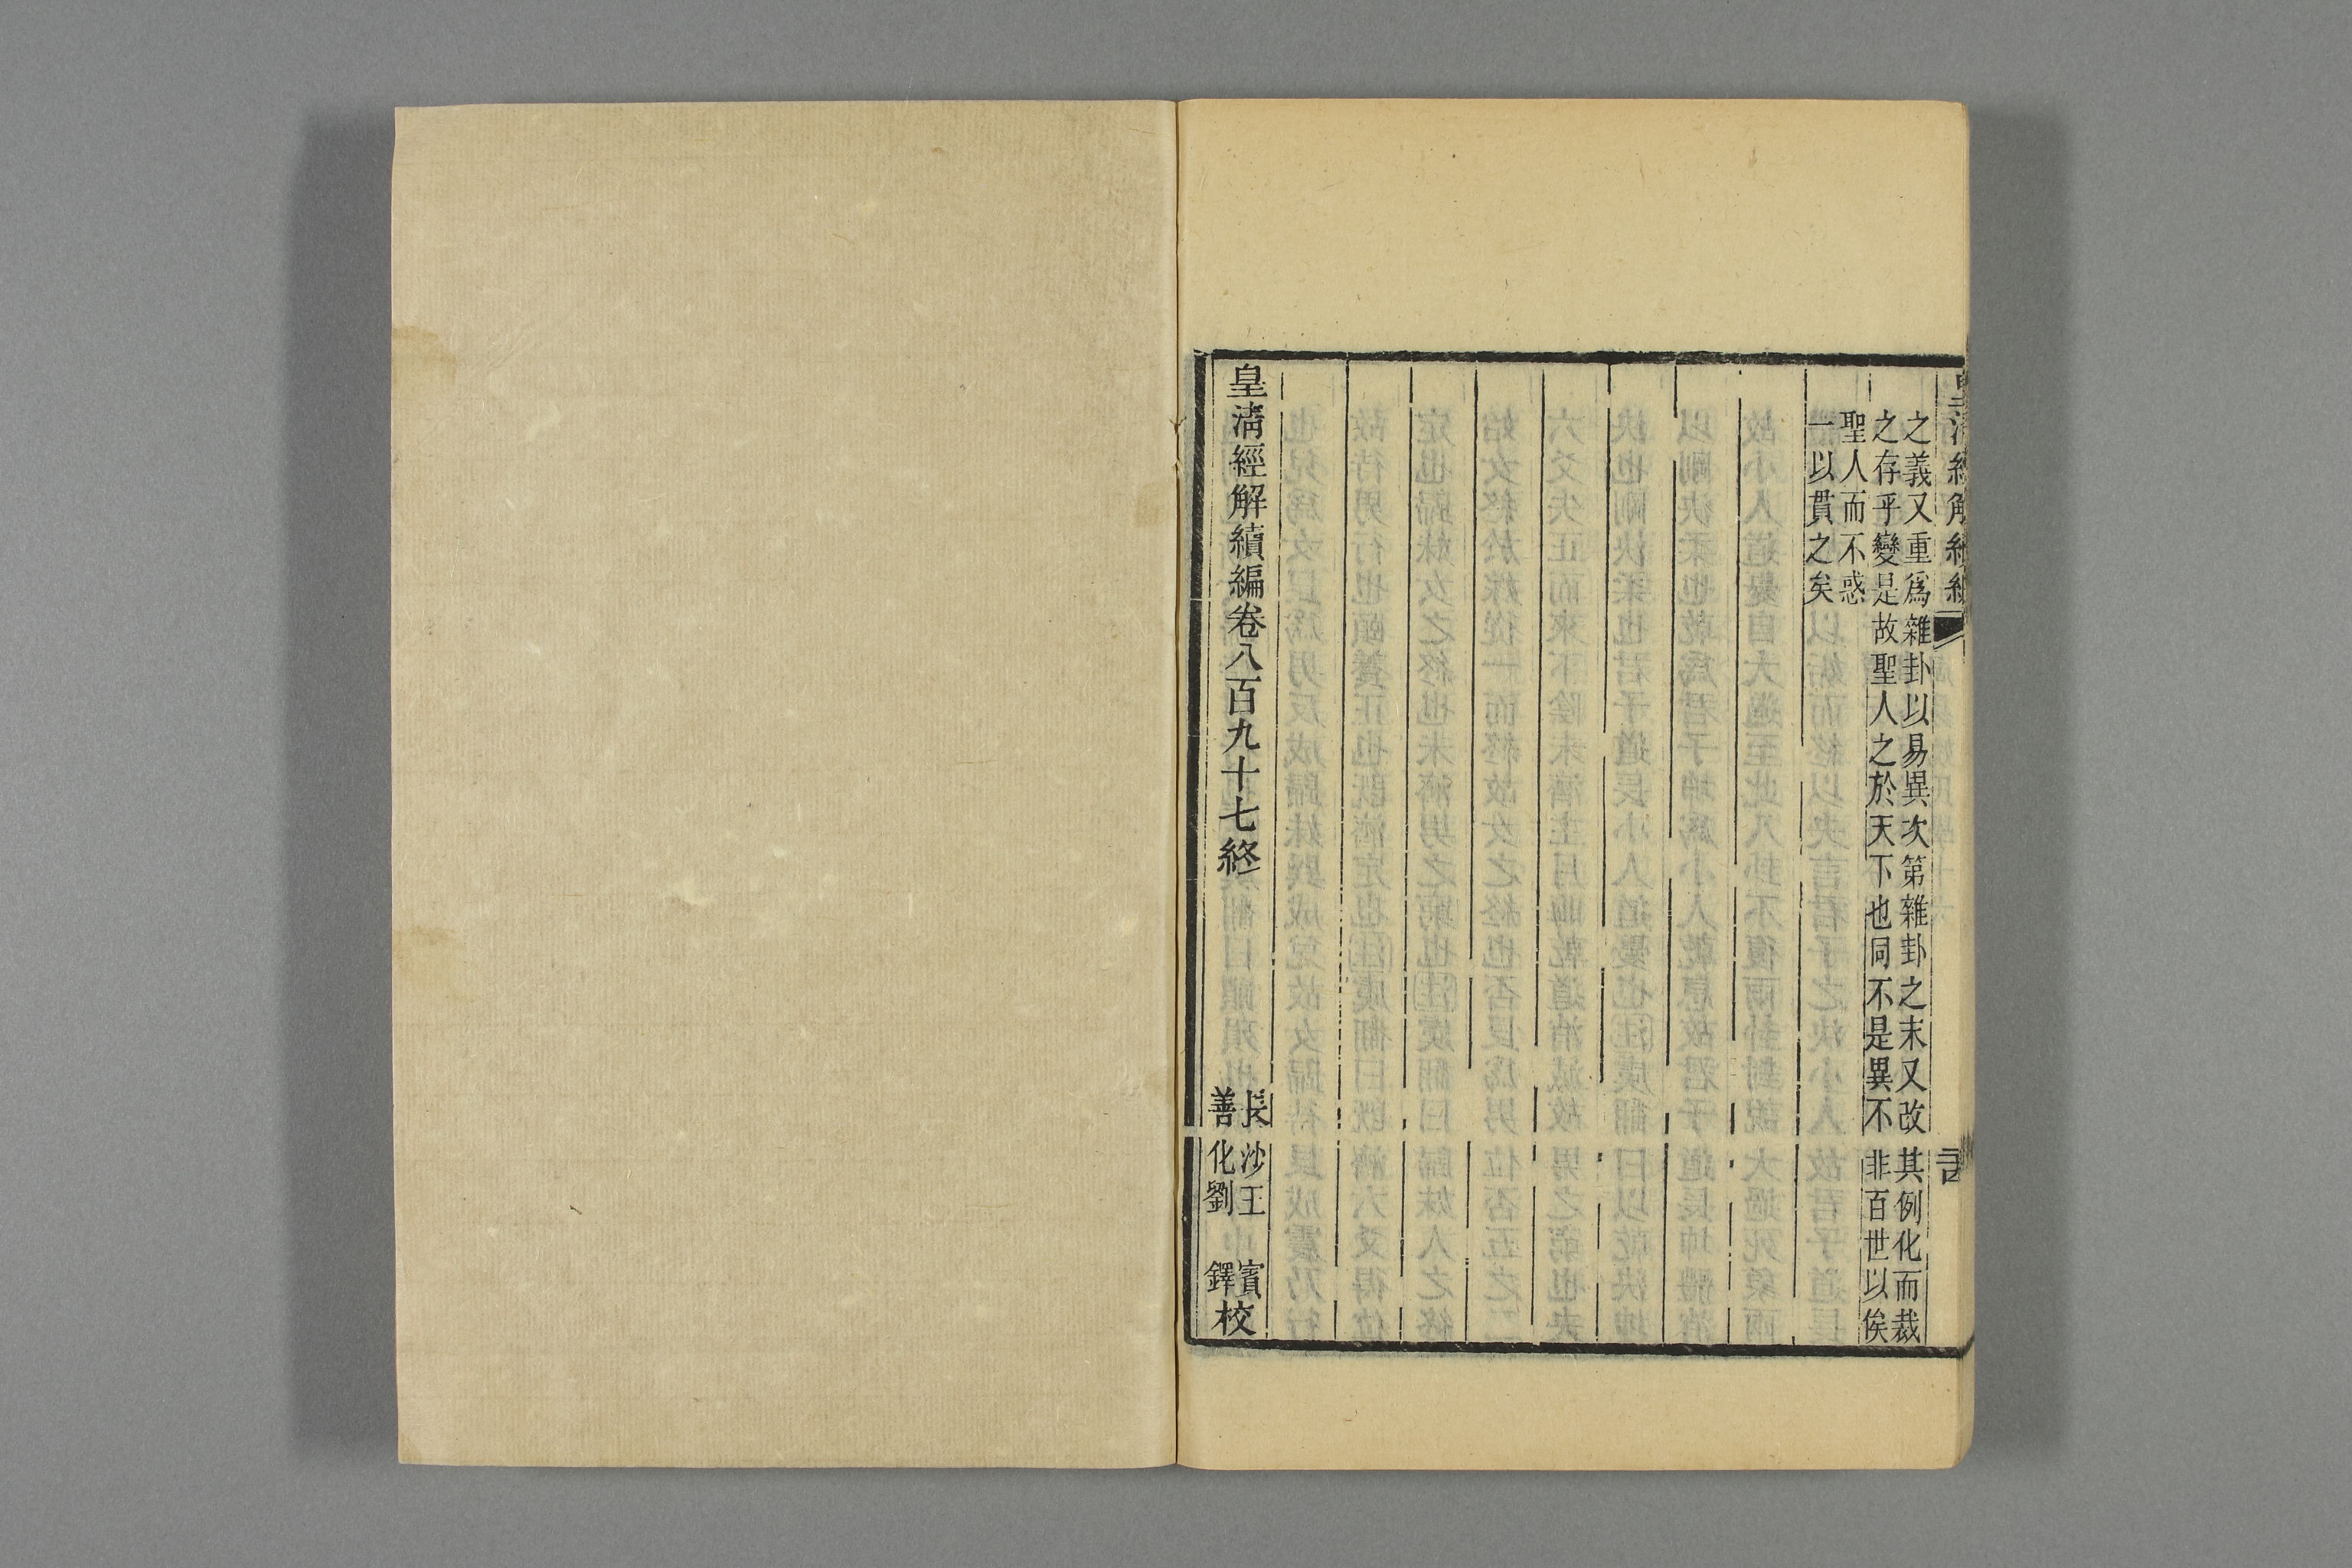 之義又重爲雜卦以易異次第雜卦之末又改其例化而裁
之存乎變是故聖人之於天下也同不是異不非百世以俟
聖人而不惑
一以貫之矣
皇清經解續編卷八百九十七終
長沙王　賓
善化劉　鐸
校